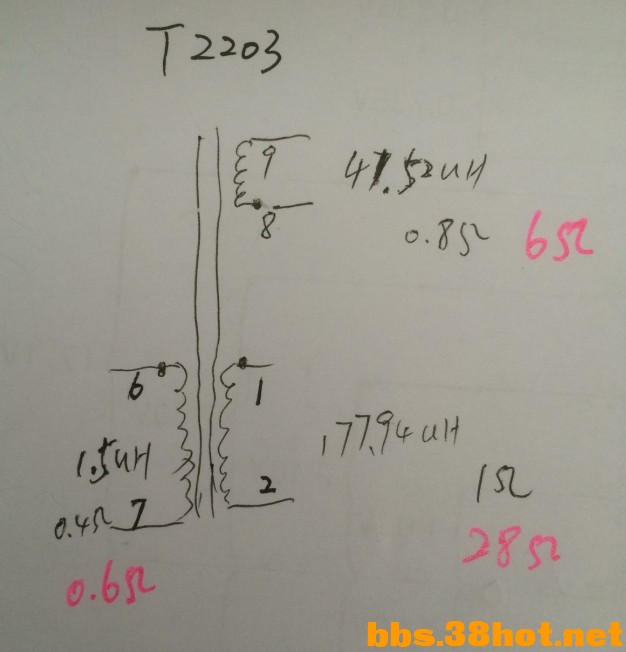 T2203
9
47.52uH
8
0.8Ω 6Ω
6
1
1.5uH
177.94uH
2
1Ω
0.4Ω 7
28Ω
0.6Ω
bbs.38hot.net